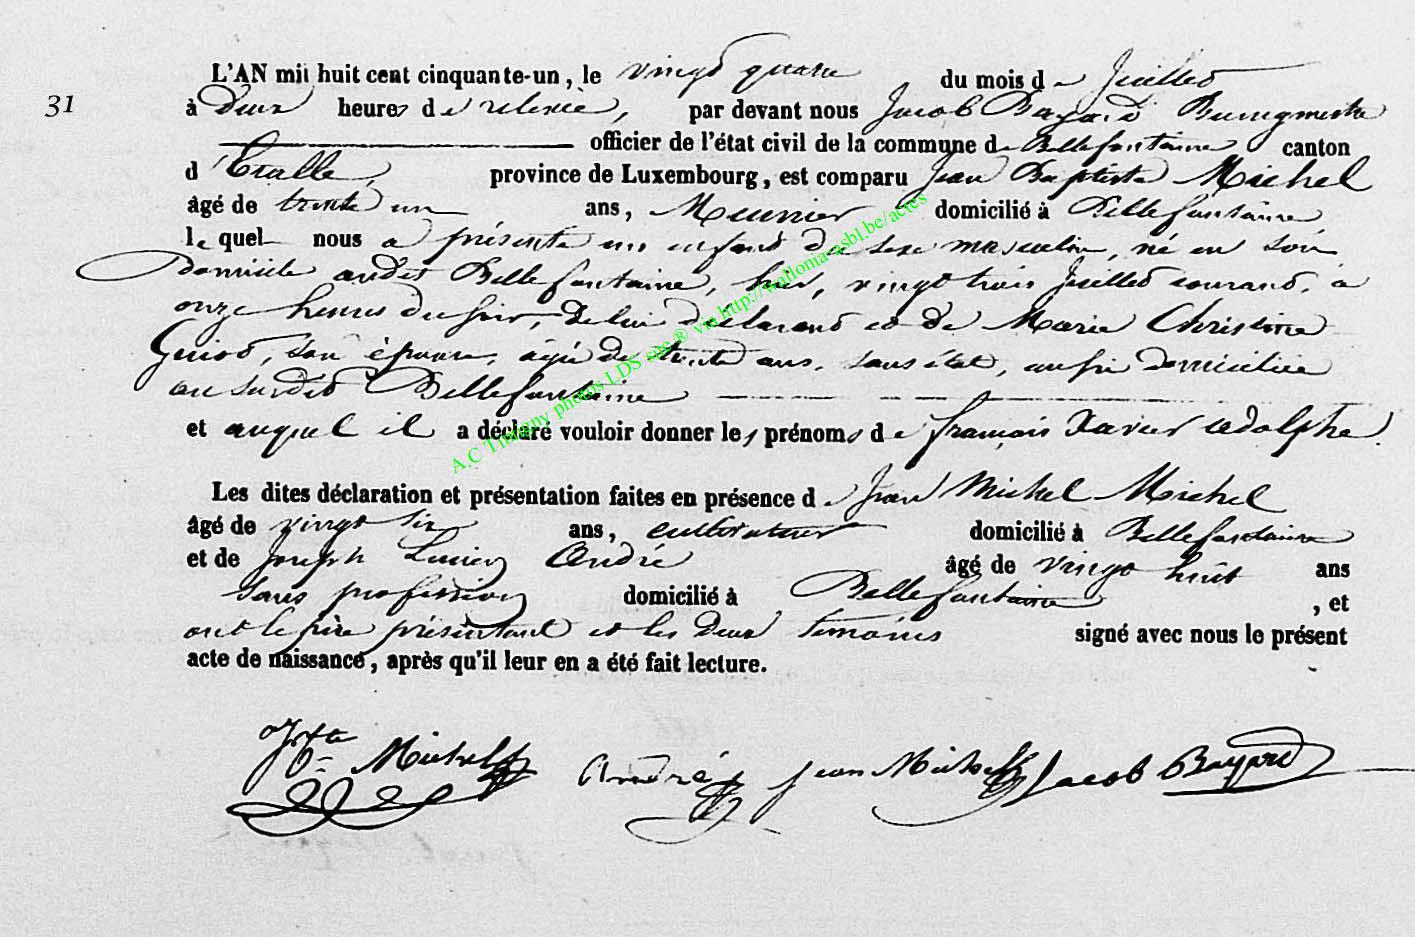 31
L'AN mil huit cent cinquante-un, le vingt quatre du mois de Juillet
à deux heures de relevée, par devant nous Jacob Bayard Bourgmestre
officier de l'état civil de la commune de Bellefontaine canton
d'Etalle, province de Luxembourg, est comparu Jean Baptiste Michel
âgé de trente un ans, Meunier domicilié à Bellefontaine
lequel nous a présenté un enfant de sexe masculin, né en son
domicile audit Bellefontaine, hier, vingt trois Juillet courant, à
onze heures du soir, de lui déclarant et de Marie Christine
Guiot, son épouse, âgée de trente ans, sans état, aussi domiciliée
au susdit Bellefontaine
et auquel il a déclaré vouloir donner les prénoms de françois Xavier adolphe.
Les dites déclaration et présentation faites en présence de Jean Michel Michel
âgé de vingt six ans, cultivateur domicilié à Bellefontaine
et de Joseph Lucien André âgé de vingt huit ans
sans profession domicilié à Bellefontaine, et
ont le père présentant et les deux témoins signé avec nous le présent
acte de naissance, après qu'il leur en a été fait lecture.
Michel André Jean Michel Jacob Bayard
A.C Tintigny photos LDS site ® via http://wallonia-asbl.be/actes